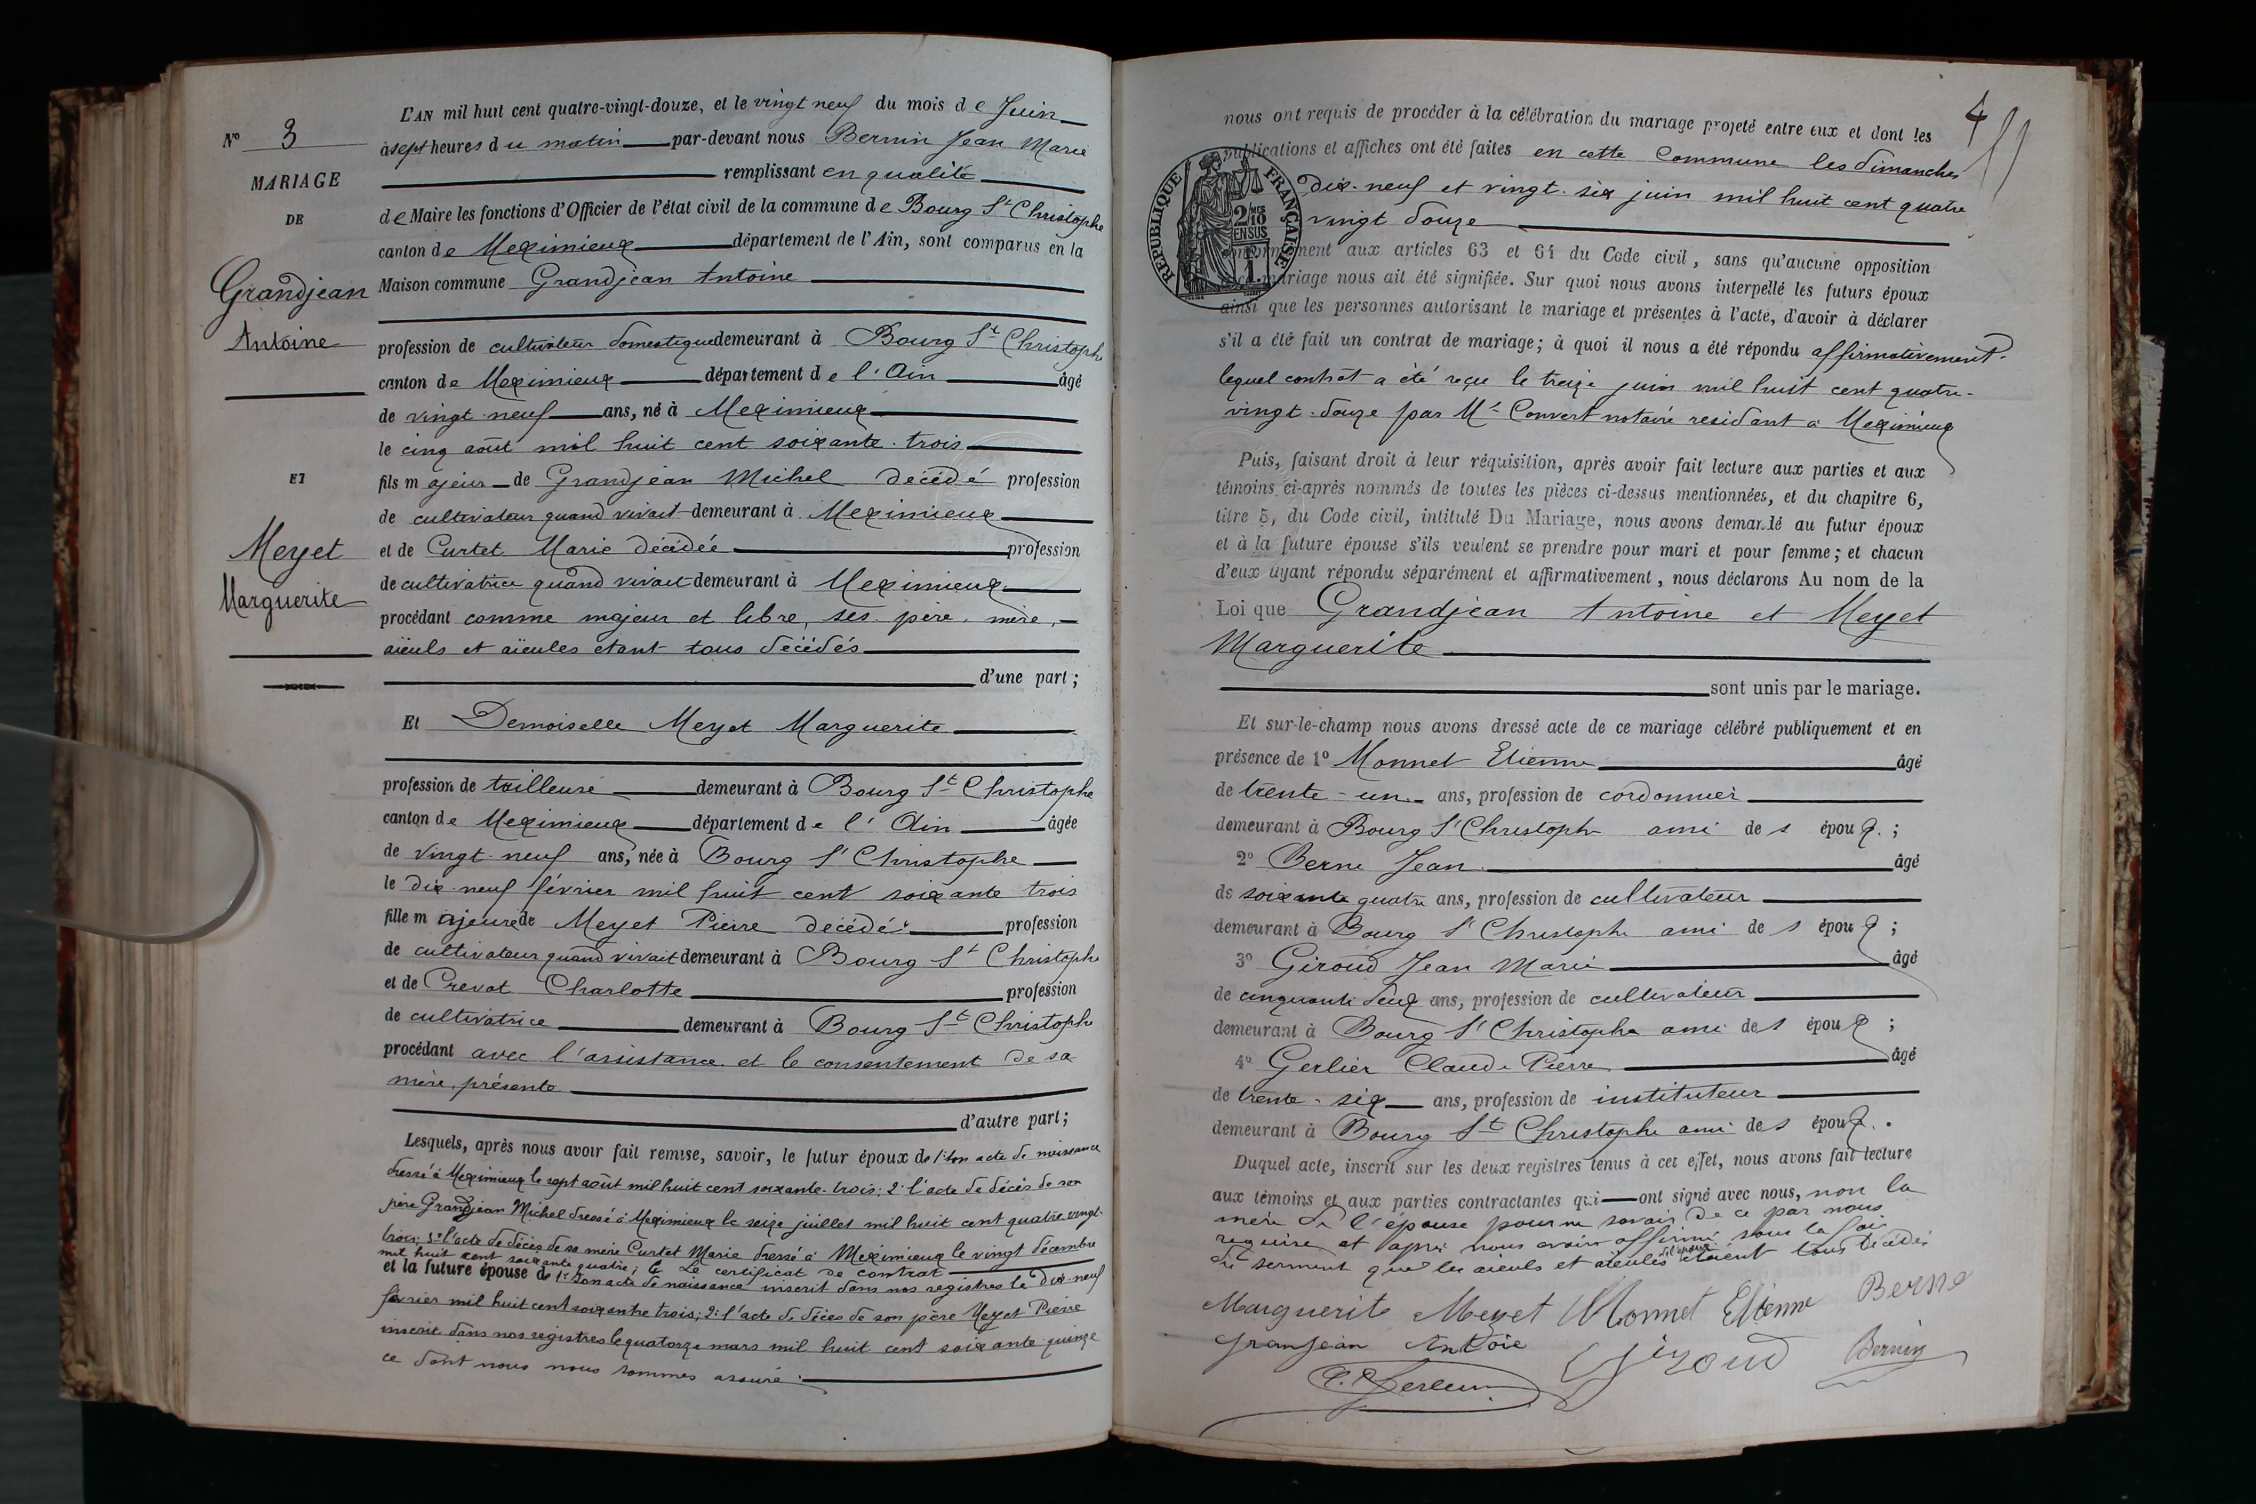 L'AN mil huit cent quatre-vingt-douze, et le vingt neuf du mois de Juin
N° 3
à sept heures du matin par-devant nous Bernin Jean Marie
MARIAGE
remplissant en qualité
DE
de Maire les fonctions d'Officier de l'état civil de la commune de Bourg St Christophe
canton de Meximieux département de l'Ain, sont comparus en la
Grandjean
Antoine
Maison commune Grandjean Antoine
profession de cultivateur domestique demeurant à Bourg St Christophe
canton de Meximieux département de l'Ain âgé
de vingt-neuf ans, né à Meximieux
le cinq août mil huit cent soixante-trois
ET
fils majeur de Grandjean Michel décédé profession
de cultivateur quand vivait demeurant à Meximieux
Meyet
Marguerite
et de Curtet Marie décédée profession
de cultivatrice quand vivait demeurant à Meximieux
procédant comme majeur et libre, ses père, mère,
aïeuls et aïeules étant tous décédés
d'une part;
Et Demoiselle Meyet Marguerite
profession de tailleuse demeurant à Bourg St Christophe
canton de Meximieux département de l'Ain âgée
de vingt-neuf ans, née à Bourg St Christophe
le dix-neuf février mil huit cent soixante trois
fille majeure de Meyet Pierre décédé profession
de cultivateur quand vivait demeurant à Bourg St Christophe
et de Crevat Charlotte profession
de cultivatrice demeurant à Bourg St Christophe
procédant avec l'assistance et le consentement de sa
mère, présente
d'autre part;
Lesquels, après nous avoir fait remise, savoir, le futur époux de 1° son acte de naissance
dressé à Meximieux le sept août mil huit cent soixante-trois; 2° l'acte de décès de son
père Grandjean Michel dressé à Meximieux le seize juillet mil huit cent quatre-vingt-
trois; 3° l'acte de décès de sa mère Curtet Marie dressé à Meximieux le vingt décembre
mil huit cent soixante quatre; Le certificat de contrat
et la future épouse de 1° Son acte de naissance inscrit dans nos registres le dix-neuf
février mil huit cent soixante trois; 2° l'acte de décès de son père Meyet Pierre
inscrit dans nos registres le quatorze mars mil huit cent soixante-quinze
ce dont nous nous sommes assuré.
4
nous ont requis de procéder à la célébration du mariage projeté entre eux et dont les
publications et affiches ont été faites en cette Commune les dimanches
dix-neuf et vingt-six juin mil huit cent quatre
vingt douze
RÉPUBLIQUE FRANÇAISE
2/10 EN SUS
conformément aux articles 63 et 64 du Code civil, sans qu'aucune opposition
mariage nous ait été signifiée. Sur quoi nous avons interpellé les futurs époux
ainsi que les personnes autorisant le mariage et présentes à l'acte, d'avoir à déclarer
s'il a été fait un contrat de mariage; à quoi il nous a été répondu affirmativement.
lequel contrat a été reçu le treize juin mil huit cent quatre-
vingt-douze par Me Convert notaire résidant à Meximieux
Puis, faisant droit à leur réquisition, après avoir fait lecture aux parties et aux
témoins ci-après nommés de toutes les pièces ci-dessus mentionnées, et du chapitre 6,
titre 5, du Code civil, intitulé Du Mariage, nous avons demandé au futur époux
et à la future épouse s'ils veulent se prendre pour mari et pour femme; et chacun
d'eux ayant répondu séparément et affirmativement, nous déclarons Au nom de la
Loi que Grandjean Antoine et Meyet
Marguerite
sont unis par le mariage.
Et sur-le-champ nous avons dressé acte de ce mariage célébré publiquement et en
présence de 1° Monnet Etienne âgé
de trente-un ans, profession de cordonnier
demeurant à Bourg St Christophe ami des époux;
2° Berne Jean âgé
de soixante quatre ans, profession de cultivateur
demeurant à Bourg St Christophe ami des époux;
3° Giroud Jean Marie âgé
de cinquante deux ans, profession de cultivateur
demeurant à Bourg St Christophe ami des époux;
4° Gerlier Claude Pierre âgé
de trente-six ans, profession de instituteur
demeurant à Bourg St Christophe ami des époux.
Duquel acte, inscrit sur les deux registres tenus à cet effet, nous avons fait lecture
aux témoins et aux parties contractantes qui ont signé avec nous, non la
mère de l'épouse pour ne savoir de ce par nous
requise et après nous avoir affirmé sous la foi
du serment que les aïeuls et aïeules de l'époux étaient tous décédés
Marguerite Meyet Monnet Etienne Berne
Granjean Antoie Giroud Bernin
C. Gerlier